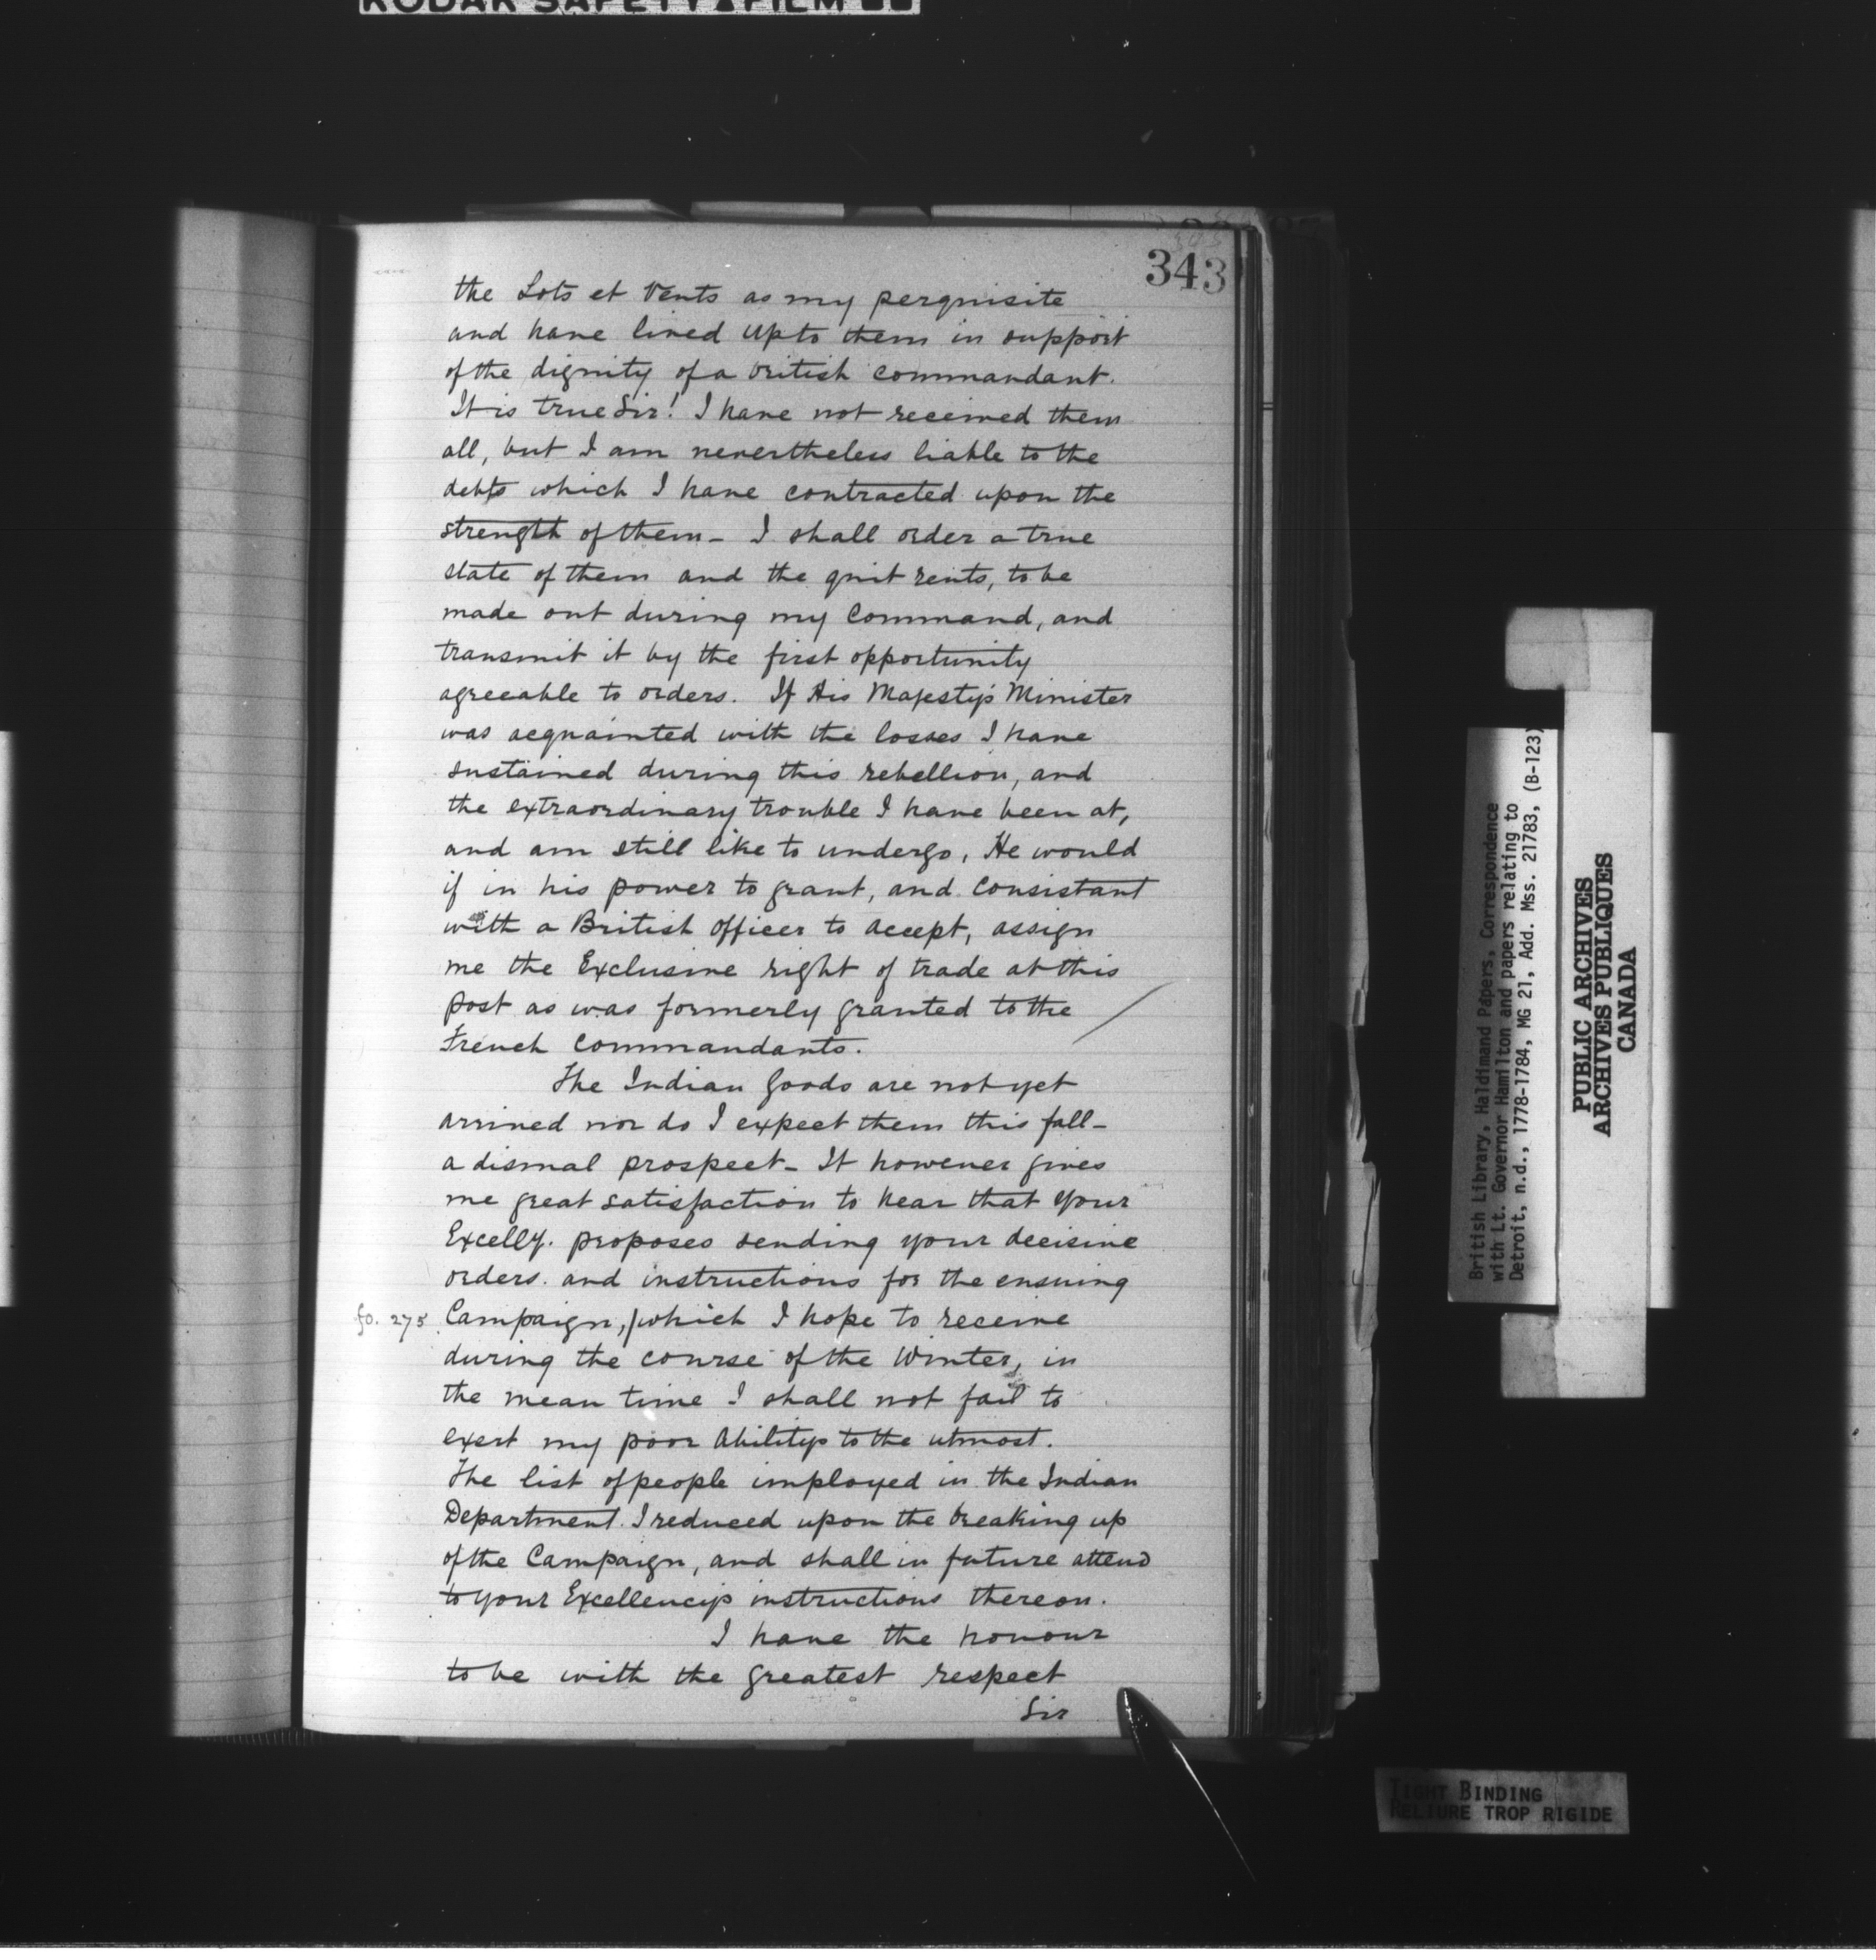 KODAK SAFETY FILM
343
the Lots et Vents as my perquisite
and have lived up to them in support
of the dignity of a British commandant.
It is true Sir! I have not received them
all, but I am nevertheless liable to the
debts which I have contracted upon the
strength of them - I shall order a true
state of them and the quit rents, to be
made out during my Command, and
transmit it by the first opportunity
agreeable to orders. If His Majesty's Minister
was acquainted with the losses I have
sustained during this rebellion, and
the extraordinary trouble I have been at,
and am still like to undergo, He would
if in his power to grant, and consistant
with a British officer to accept, assign
me the Exclusive right of trade at this
post as was formerly granted to the
French Commandants.
The Indian Goods are not yet
arrived nor do I expect them this fall -
a dismal prospect - It however gives
me great satisfaction to hear that your
Excelly. proposes sending your decisive
orders. and instructions for the ensuing
fo. 275 Campaign,/which I hope to receive
during the course of the Winter, in
the mean time I shall not fail to
exert my poor Abilitys to the utmost.
The list of people imployed in the Indian
Department I reduced upon the breaking up
of the Campaign, and shall in future attend
to your Excellency's instructions thereon.
I have the honour
to be with the greatest respect
Sir
British Library, Haldimand Papers, Correspondence
with Lt. Governor Hamilton and papers relating to
Detroit, n.d., 1778-1784, MG 21, Add. Mss. 21783, (B-123)
PUBLIC ARCHIVES
ARCHIVES PUBLIQUES
CANADA
TIGHT BINDING
RELIURE TROP RIGIDE